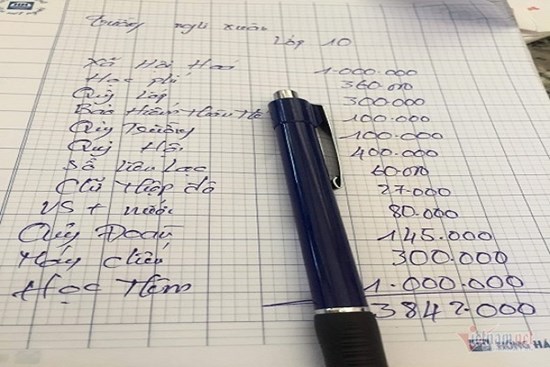 Trường nghi xuân
Lớp 10
Xã Hội Hoá 1.000.000
Học phí 360.000
Quỹ Lớp 300.000
Bảo Hiểm thân thể 100.000
Quỹ Trường 100.000
Quỹ Hội 400.000
Sổ liên Lạc 60.000
27.000
VS + nước 80.000
Quỹ Đoàn 145.000
Máy chiếu 300.000
Học thêm 1.000.000
3842.000
vietnamnet
HONG HA